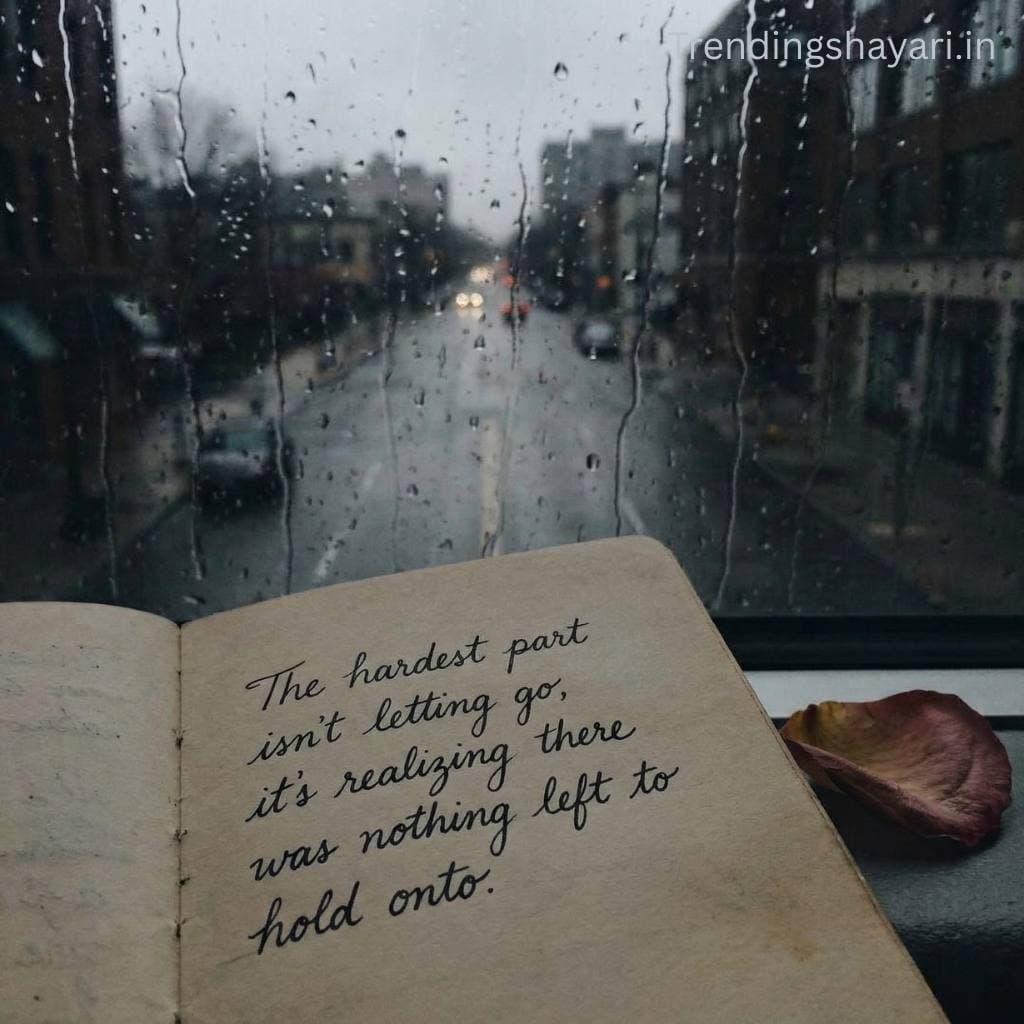 Trendingshayari.in
The hardest part
isn't letting go,
it's realizing there
was nothing left to
hold onto.